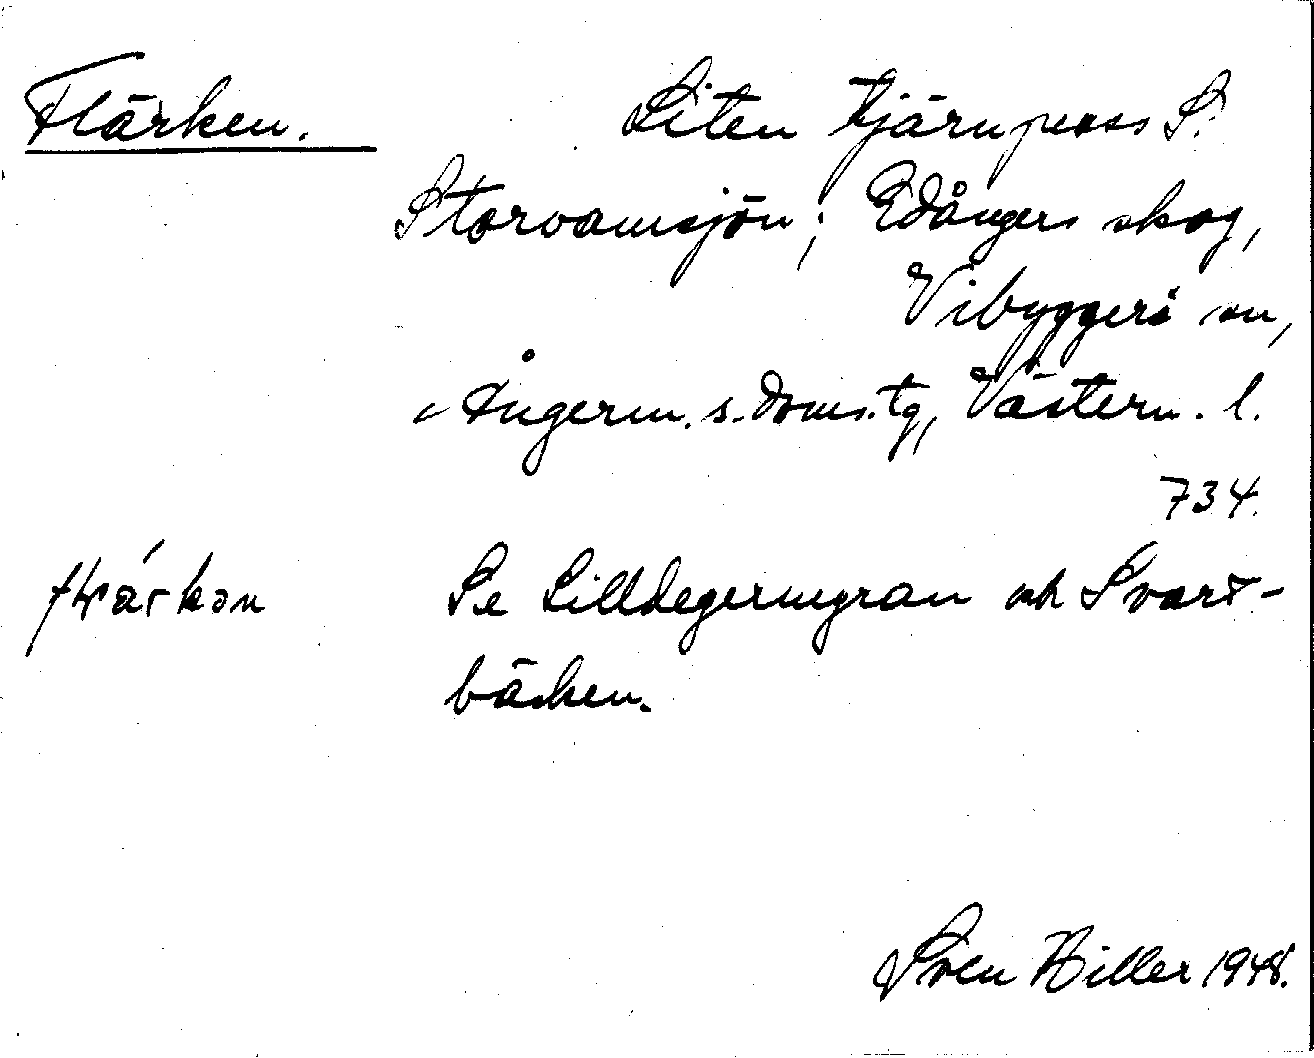 Flärken. Liten tjärn, pass S.
Storvamsjön; Edångers skog,
Vibyggerå sn,
Ångerm. s. doms. tg, Västern. l.
734.
Se Lilldegermyran och Svart-
bäcken.
Sven Hiller 1948.